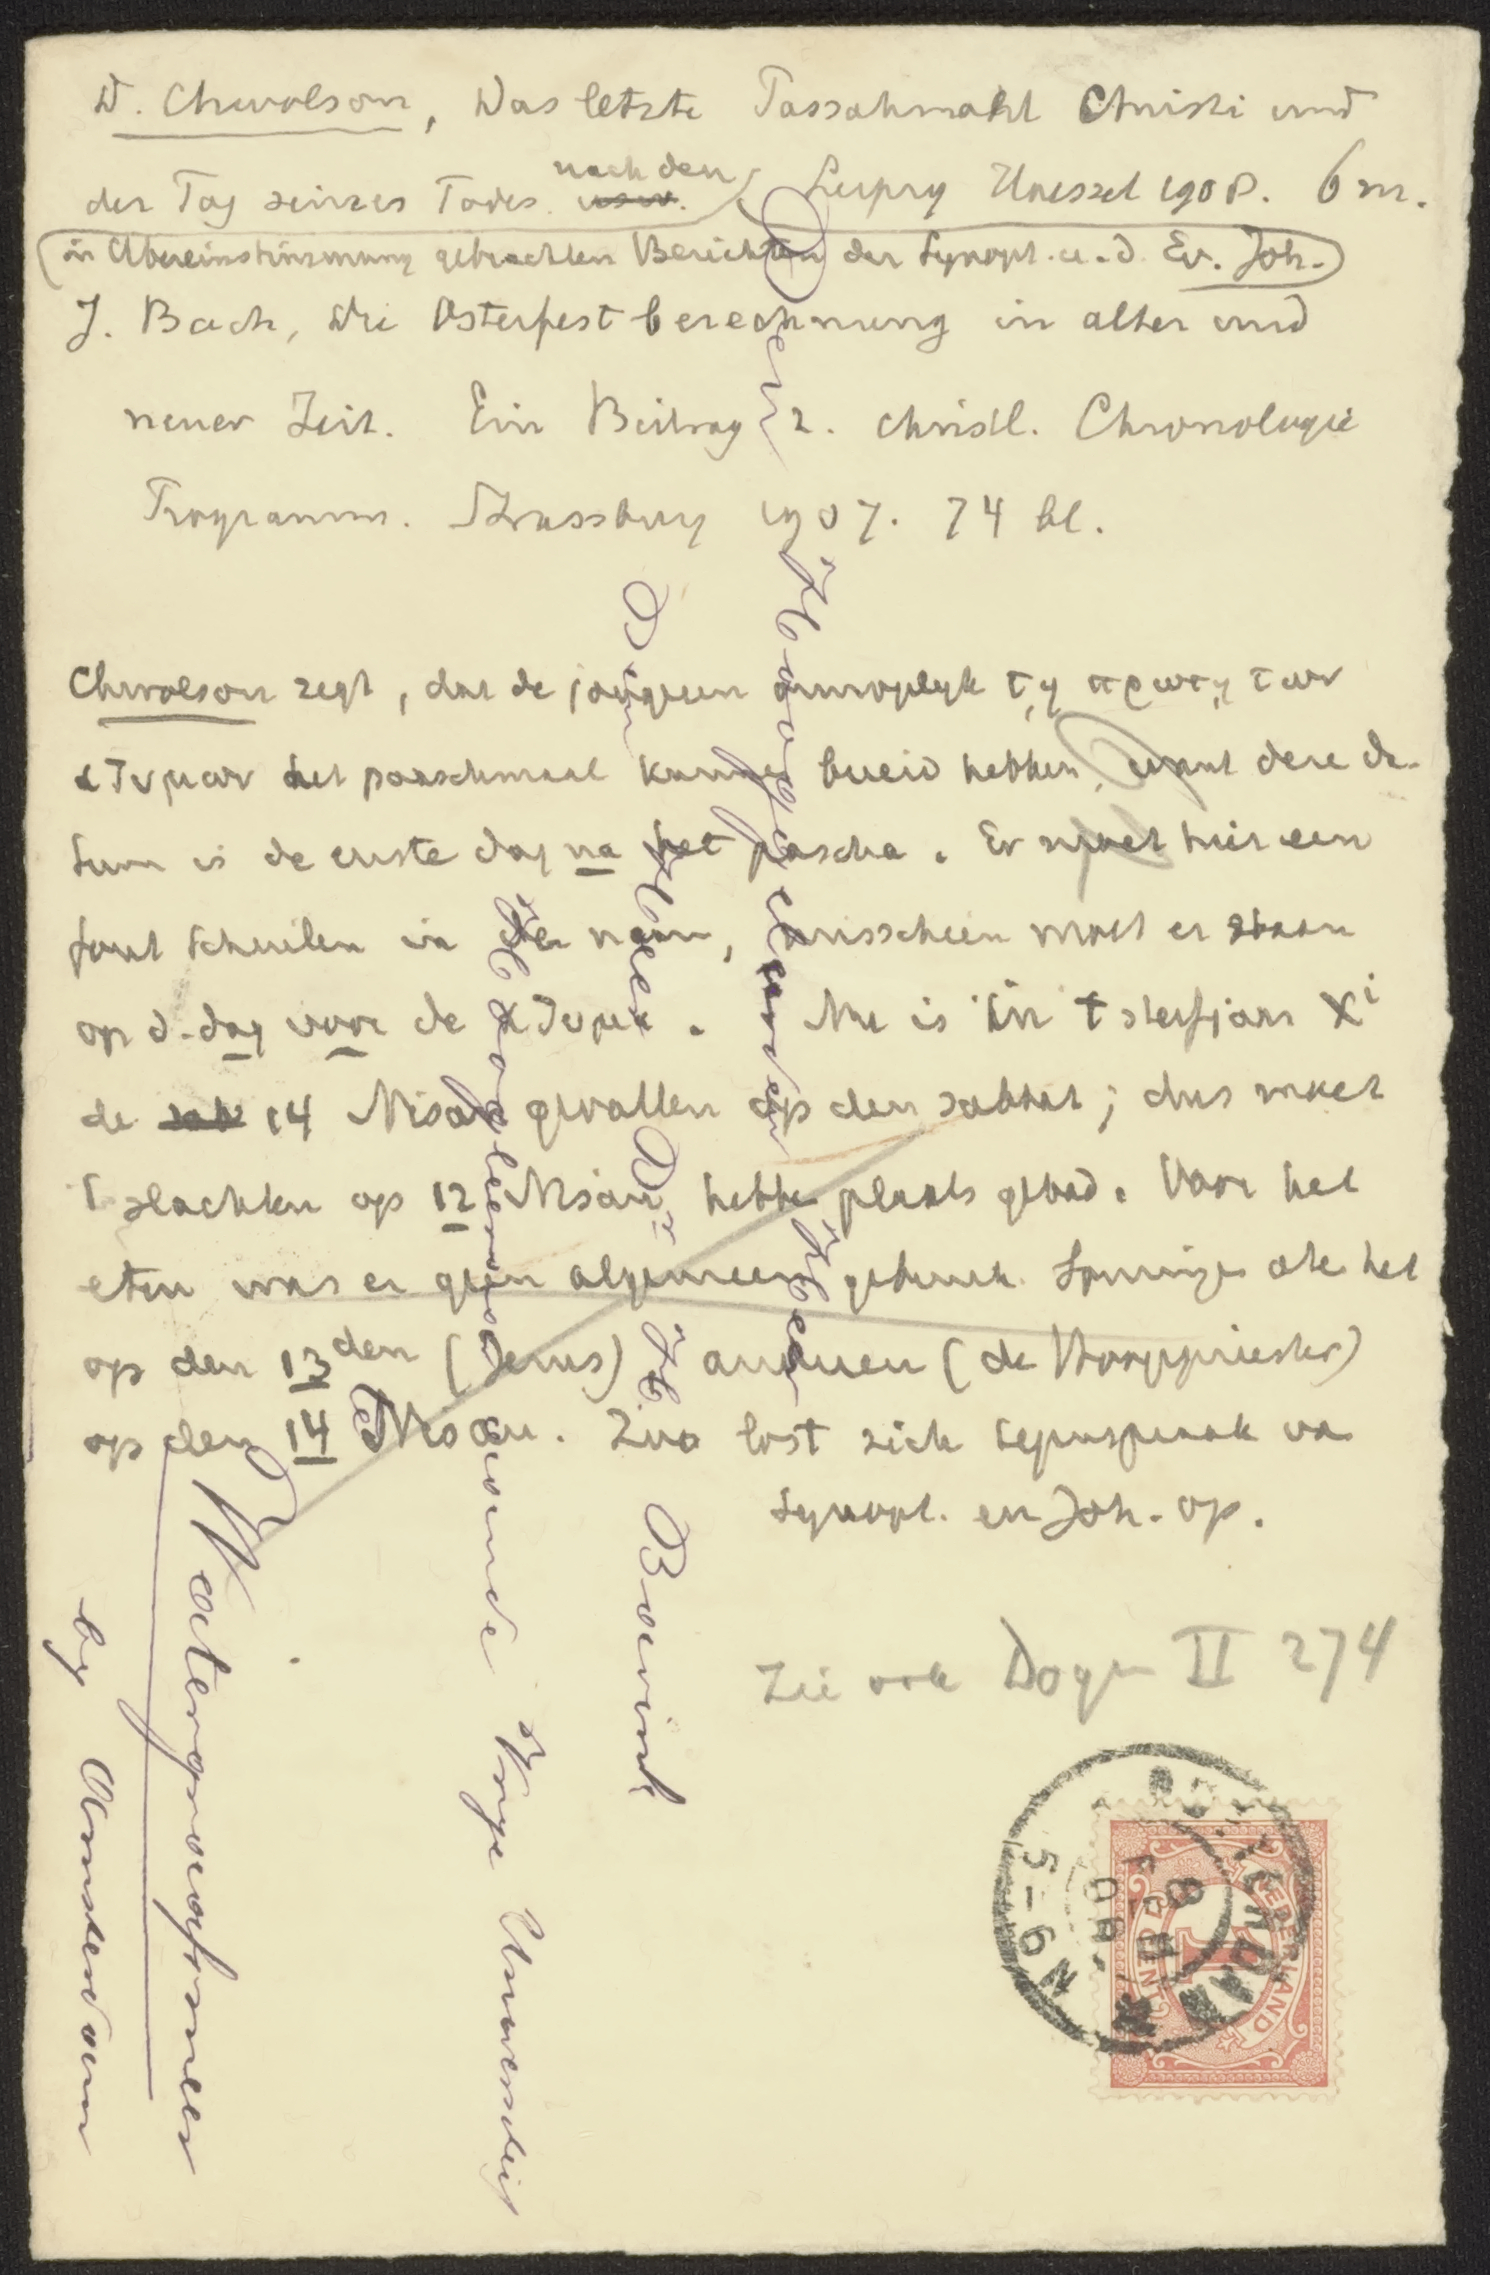 D. Chwolson, Das letzte Passahmahl Christi und
der Tag seines Todes nach den Leipzig Haessel 1908. 6 m.
in Übereinstimmung gebrachten Berichten der Synopt. u. d. Ev. Joh.
J. Bach, Die Osterfestberechnung in alter und
neuer Zeit. Ein Beitrag z. christl. Chronologie
Programm. Strassburg 1907. 74 bl.
Chwolson zegt, dat de jongeren onmogelijk τῃ πρωτῃ των
ἀζυμων het paaschmaal kunnen bereid hebben, want deze da-
tum is de eerste dag na het pascha. Er moet hier een
fout schuilen in den naam, misschien moet er staan
op d. dag voor de ἀζυμα. Nu is in 't sterfjaar Xi
de 14 Nisan gevallen op den sabbat; dus moet
't slachten op 12 Nisan hebben plaats gehad. Voor het
eten was er geen algemeen gebruik. Sommige aten het
op den 13den (Jezus) anderen (de Hoogepriester)
op den 14 Nisan. Zoo lost zich tegenspraak van
Synopt. en Joh. op.
Zie ook Dogm II 274
Den Hooggeleerden Heer
Den Heer Dr. H. Bavinck
Hoogleeraar aan de Vrije Universiteit
te
Watergraafsmeer
by Amsterdam
ROTTERDAM
8 FEB
08
5-6 N
NEDERLAND
CENT